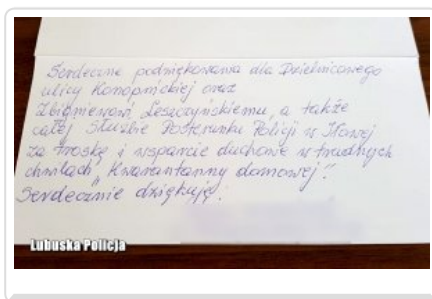 Serdeczne podziękowania dla Dzielnicowego
ulicy Konopnickiej oraz
Zbigniewowi Leszczyńskiemu, a także
całej Służbie Posterunku Policji w Iłowej
za troskę i wsparcie duchowe w trudnych
chwilach „kwarantanny domowej".
Serdecznie dziękuję!
Lubuska Policja